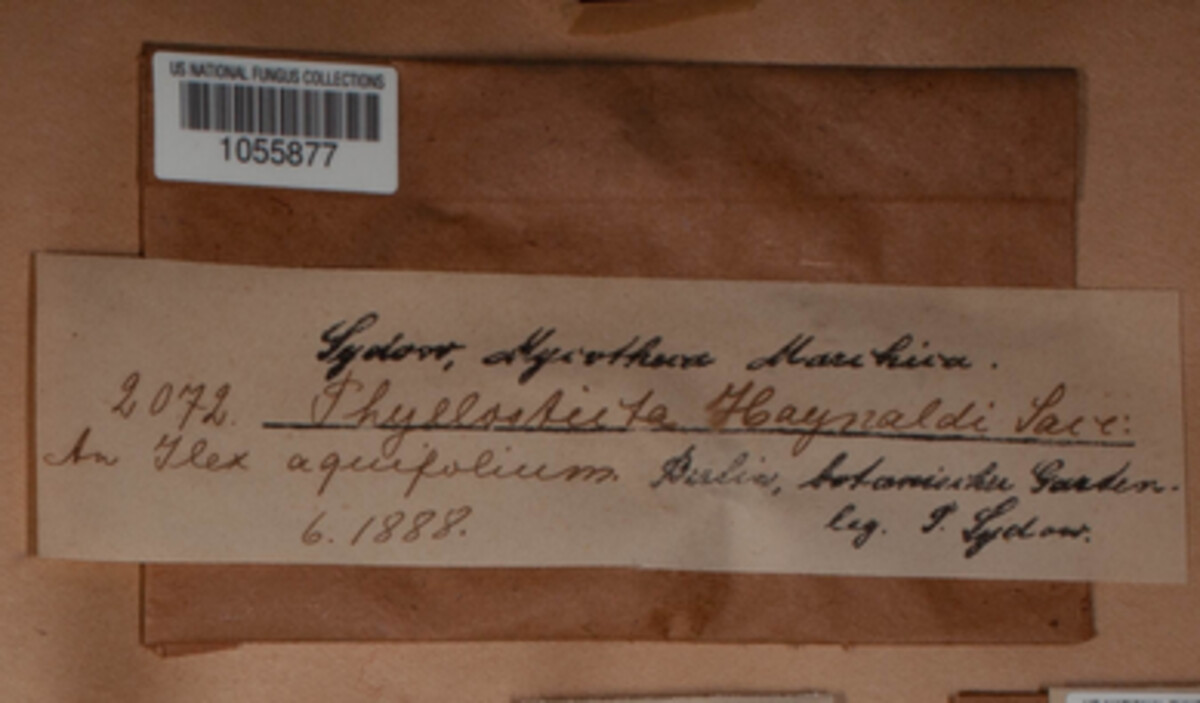 US NATIONAL FUNGUS COLLECTIONS
1055877
Sydow, Mycotheca Marchica.
2072. Phyllosticta Haynaldi Sacc:
An Ilex aquifolium. Berlin, botanischer Garten.
6. 1888. leg. P. Sydow.